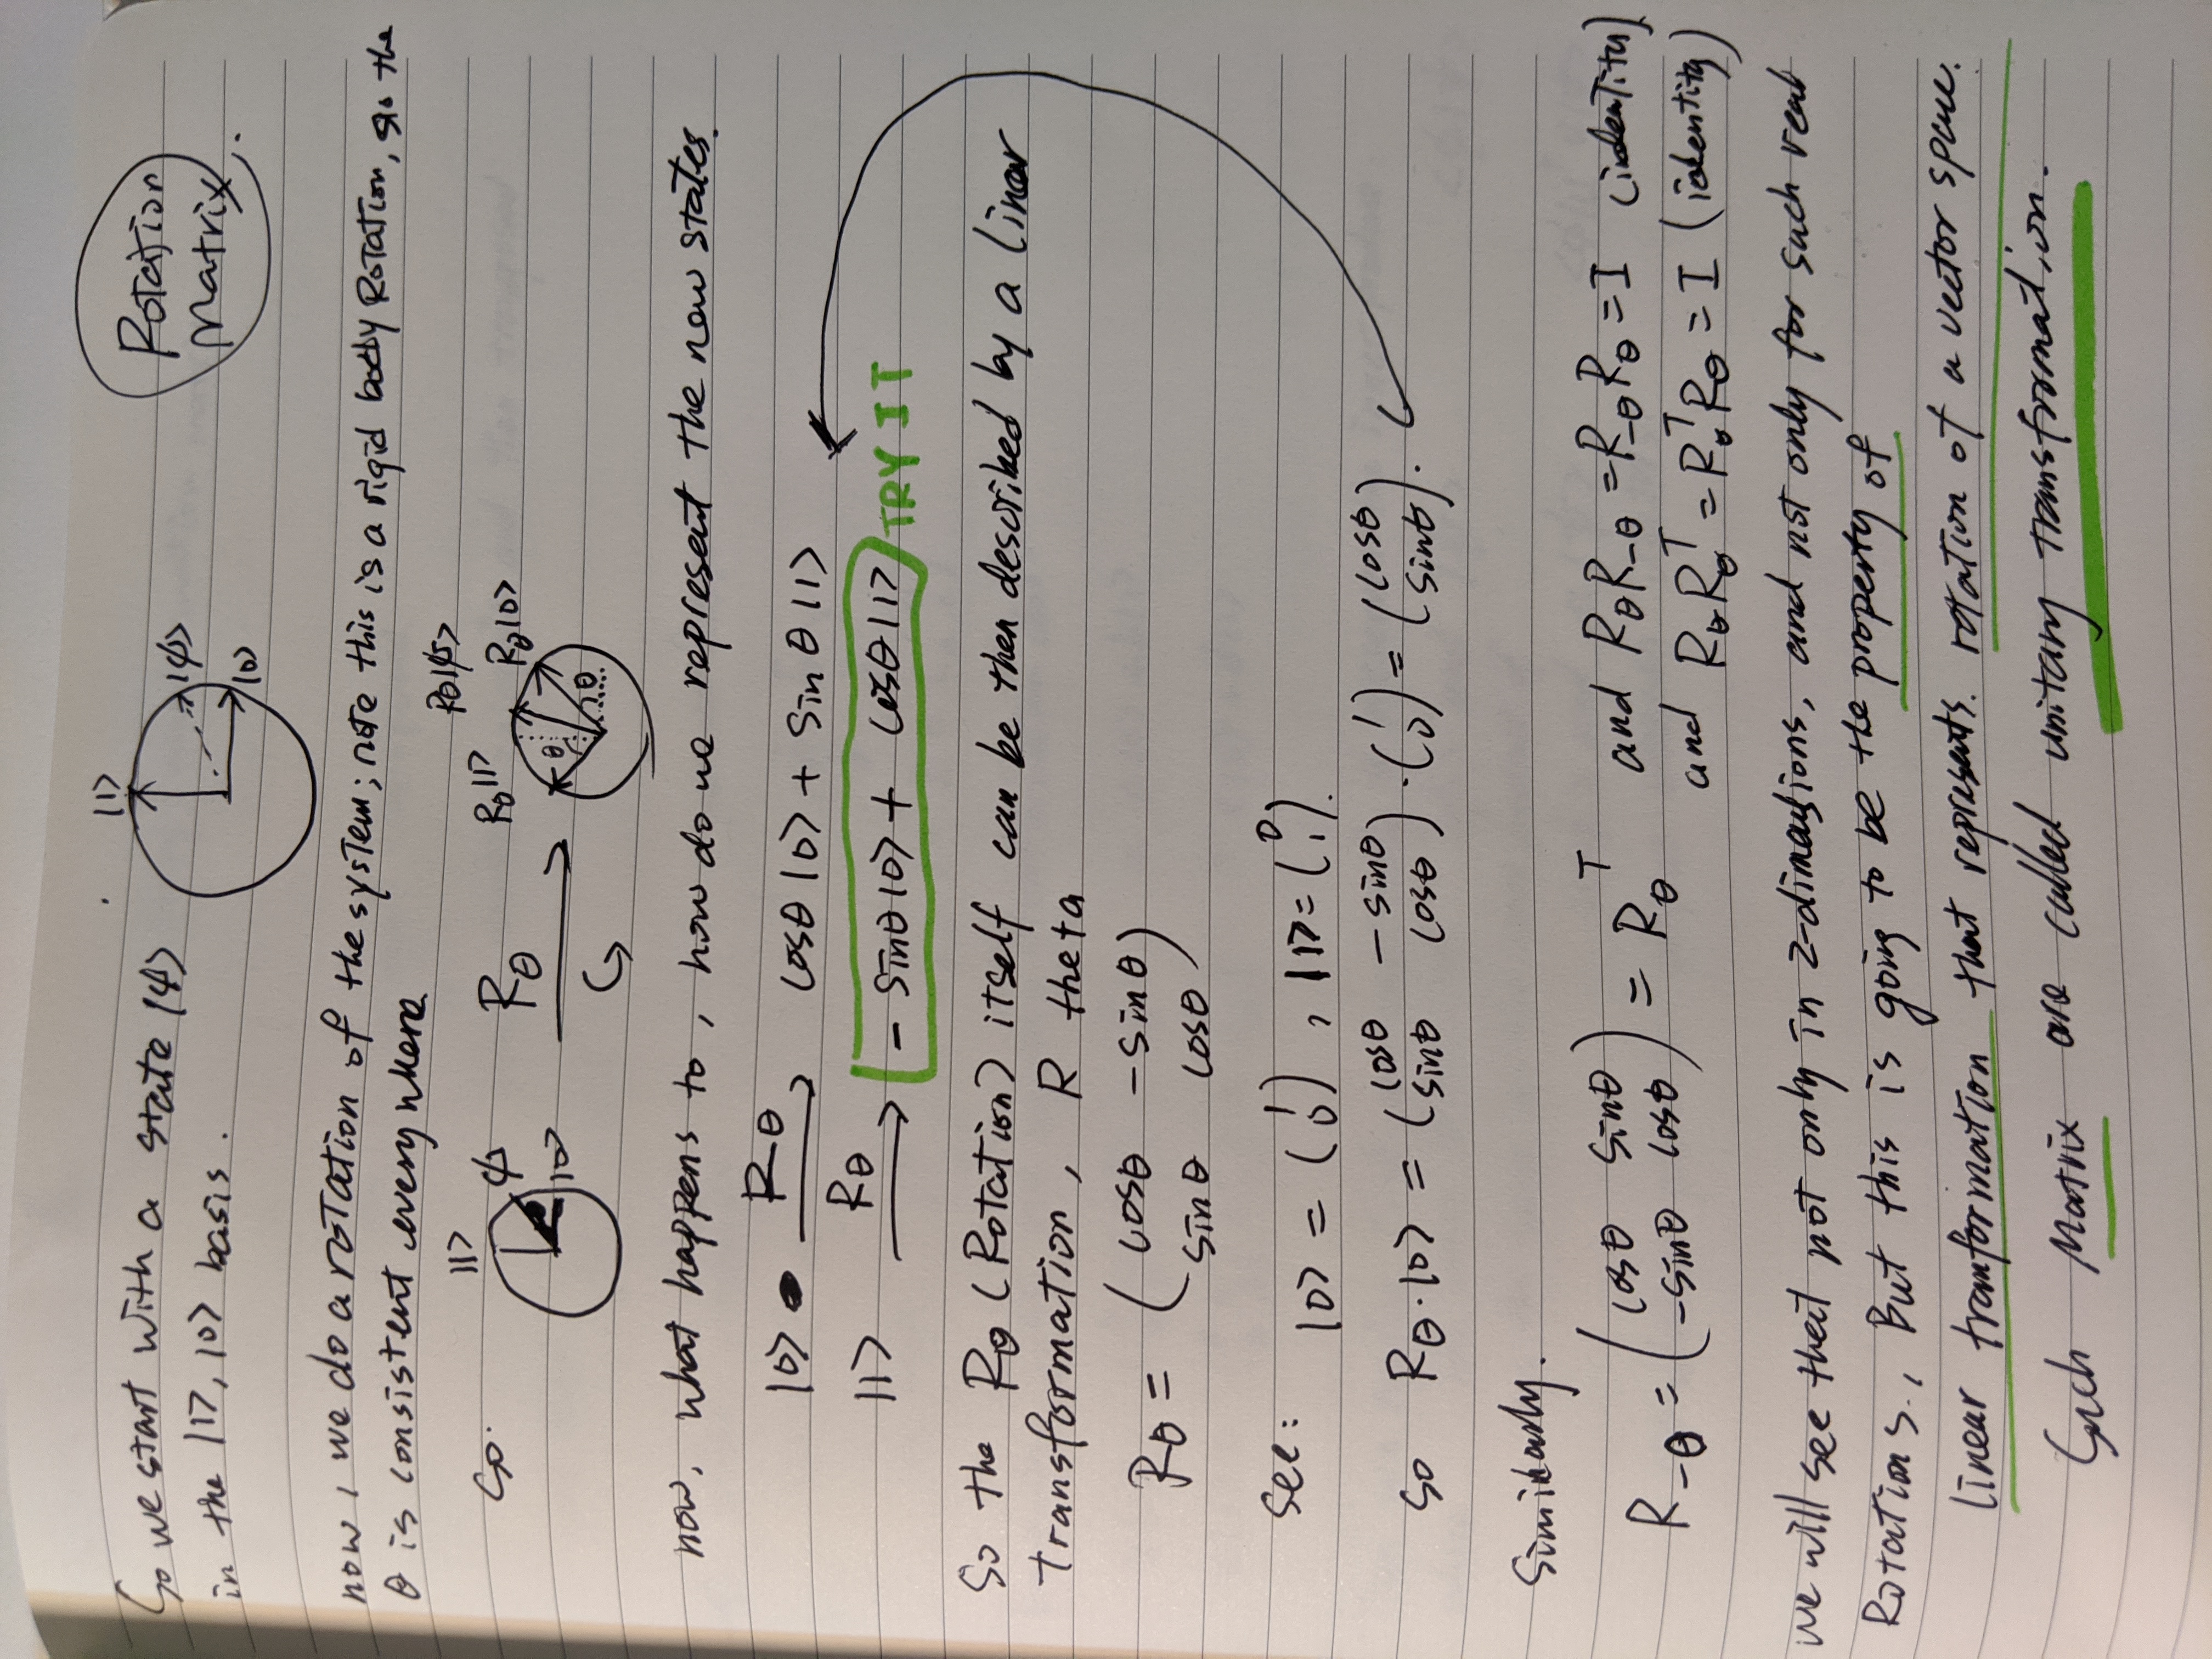 So we start with a state |ψ>
in the |1>, |0> basis.
|1>
|ψ>
|0>
Rotation
Matrix.
now, we do a rotation of the system; note this is a rigid body Rotation, so the
θ is consistent everywhere
so.
|1>
ψ
|0>
Rθ
Rθ|1>
Rθ|ψ>
Rθ|0>
θ
θ
now, what happens to, how do we represent the new states.
|0> Rθ cosθ|0> + sinθ|1>
|1> Rθ - sinθ|0> + cosθ|1> TRY IT
So the Rθ (Rotation) itself can be then described by a linear
transformation, R theta
Rθ = ( cosθ -sinθ
sinθ cosθ )
see:
|0> = (1 0), |1> = (0 1).
so Rθ·|0> = ( cosθ -sinθ
sinθ cosθ ) · (1 0) = ( cosθ
sinθ ).
Similarly.
R-θ = ( cosθ sinθ
-sinθ cosθ ) = Rθ^T
and RθR-θ = R-θRθ = I (identity)
and RθRθ^T = Rθ^TRθ = I (identity)
we will see that not only in 2-dimensions, and not only for such real
Rotations., But this is going to be the property of
linear tranformation that represents. rotation of a vector space.
Such Matrix are called unitary transformation.